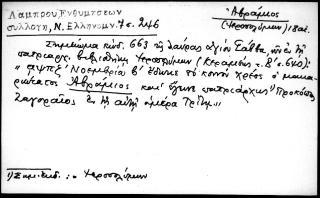 Λάμπρου Ενθυμήσεων
συλλογή, Ν. Ελληνομν. 7 σ. 246
Αβράμιος
(Ιεροσολύμων) 18 αἰ.
Σημείωμα κώδ. 663 τῆς Λαύρας ἁγίου Σάββα, νῦν ἐν τῇ
πατριαρχ. βιβλιοθήκῃ Ἱεροσολύμων (Κεραμέως τ. Β' σ. 640):
"αψπξ' Νοεμβρίῳ β' ἔδωκε τὸ κοινὸν χρέος ὁ μακα-
ριώτατος Ἀβράμιος καὶ ἔγινε πατριάρχης Προκόπιος
ἐν τῇ αὐτῇ ἡμέρᾳ Τρίτῃ"
1) Σημ. ἐκδ. : Ἱεροσολύμων